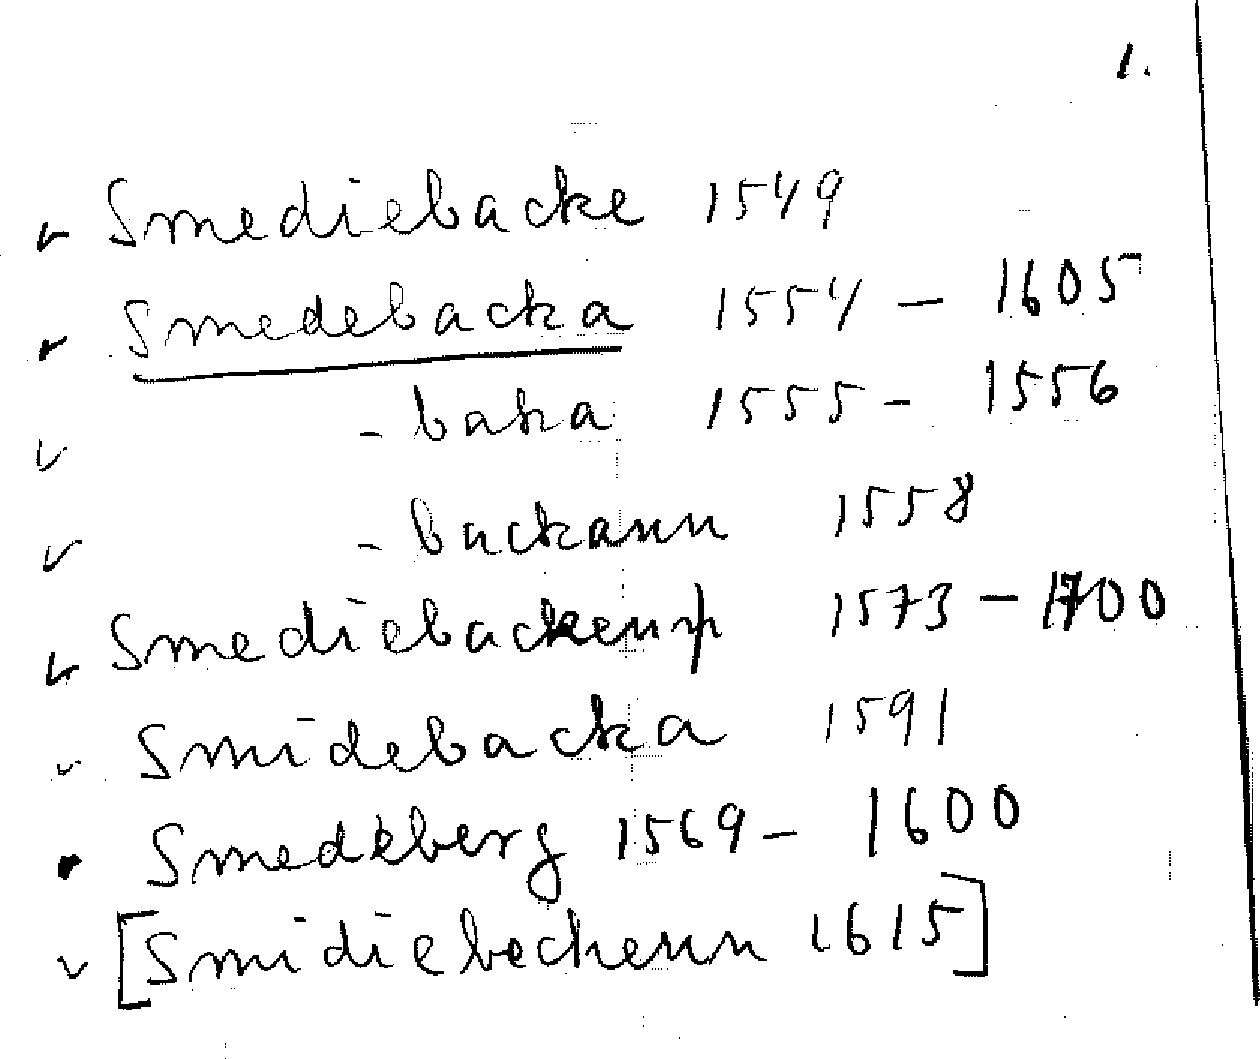 1.
Smediebacke 1549
Smedebacka 1554 - 1605
- baka 1555 - 1556
- backann 1558
Smediebackenn 1573 - 1700
Smidebacka 1591
Smedeberg 1569 - 1600
[Smidiebeckenn 1615]